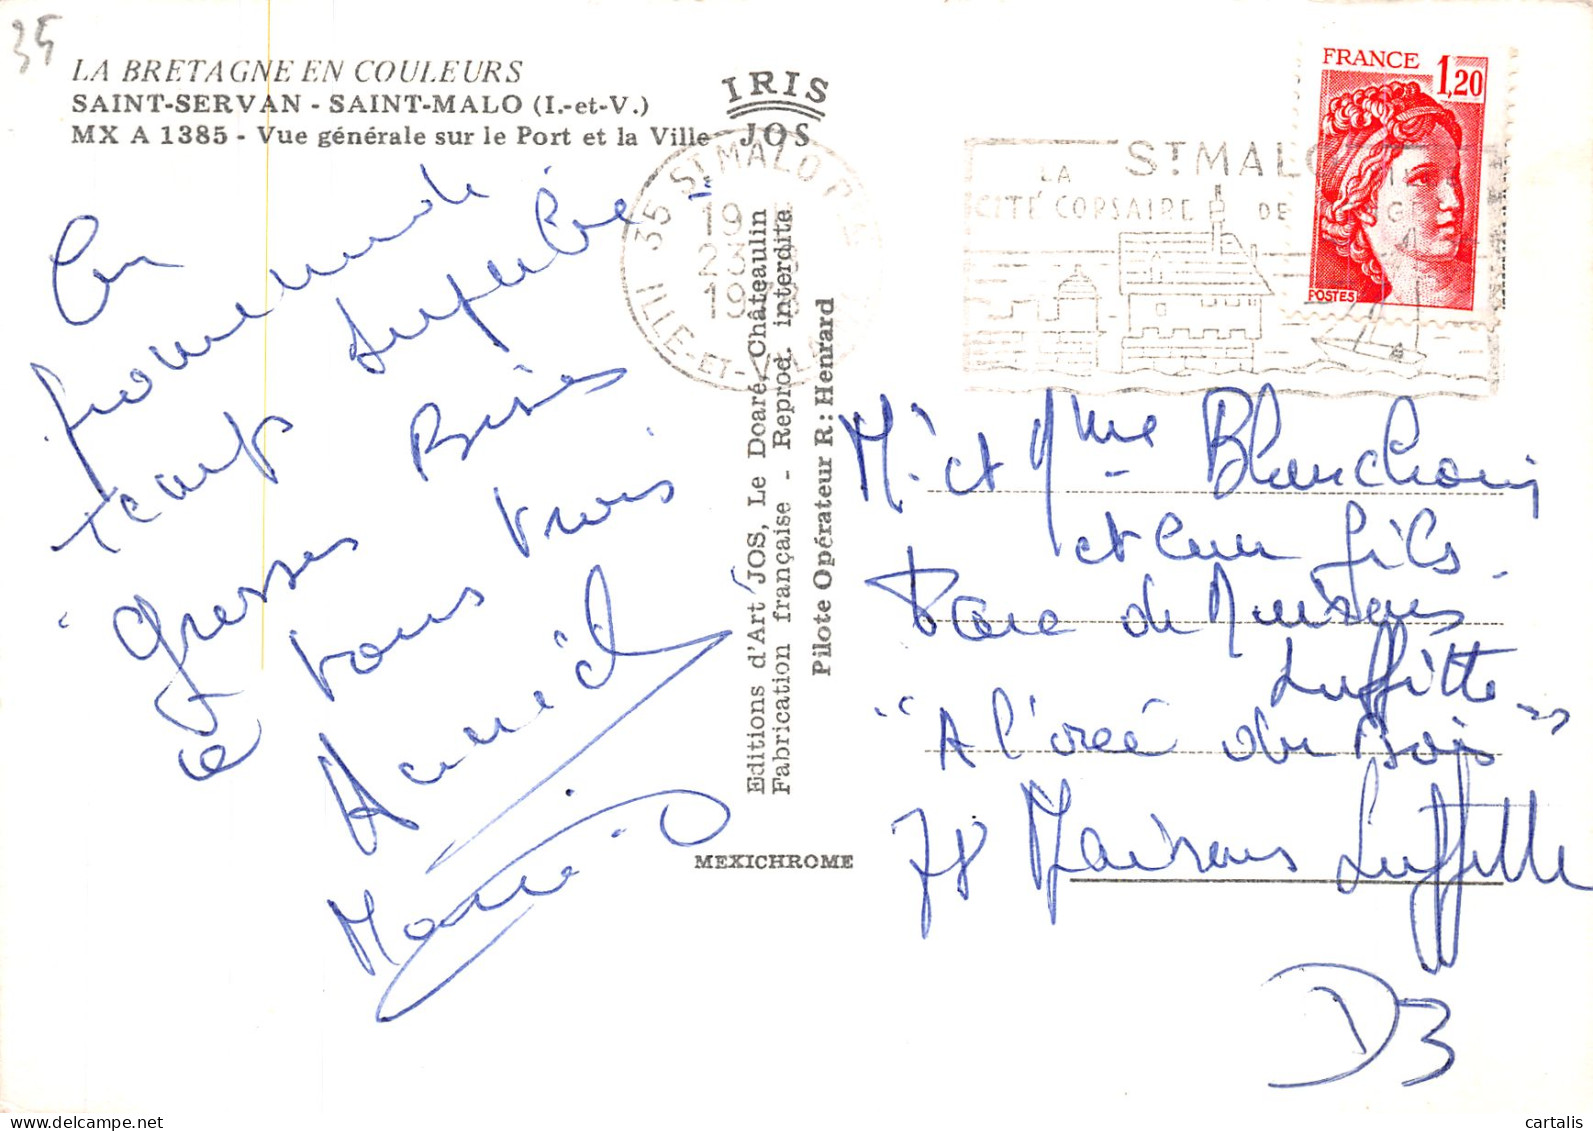 35
LA BRETAGNE EN COULEURS
SAINT-SERVAN - SAINT-MALO (I.-et-V.)
MX A 1385 - Vue générale sur le Port et la Ville
IRIS
JOS
En
promenade
temps superbe
Grosses Bises
à vous trois
Annick
Marie
Editions d'Art JOS, Le Doaré, Châteaulin
Fabrication française - Reprod. interdite
Pilote Opérateur R : Henrard
MEXICHROME
35 ST MALO
19
23
19
ILLE-ET-VILAINE
ST MALO
LA
CITÉ CORSAIRE DE
FRANCE 1,20
POSTES
Mr et Mme
et leur fils
Parc de Maisons
Laffitte
"A l'orée du Bois"
78 Maisons Laffitte
D3
cartalis
Delcampe.net